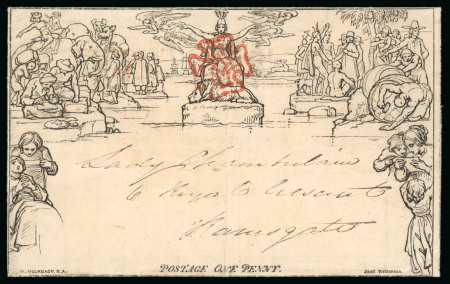 Lady Chamberlain
6 Royal Crescent
Ramsgate
W. MULREADY, R.A.
POSTAGE ONE PENNY.
JOHN THOMPSON